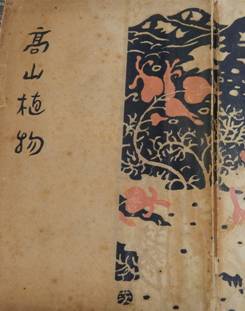 高山植物